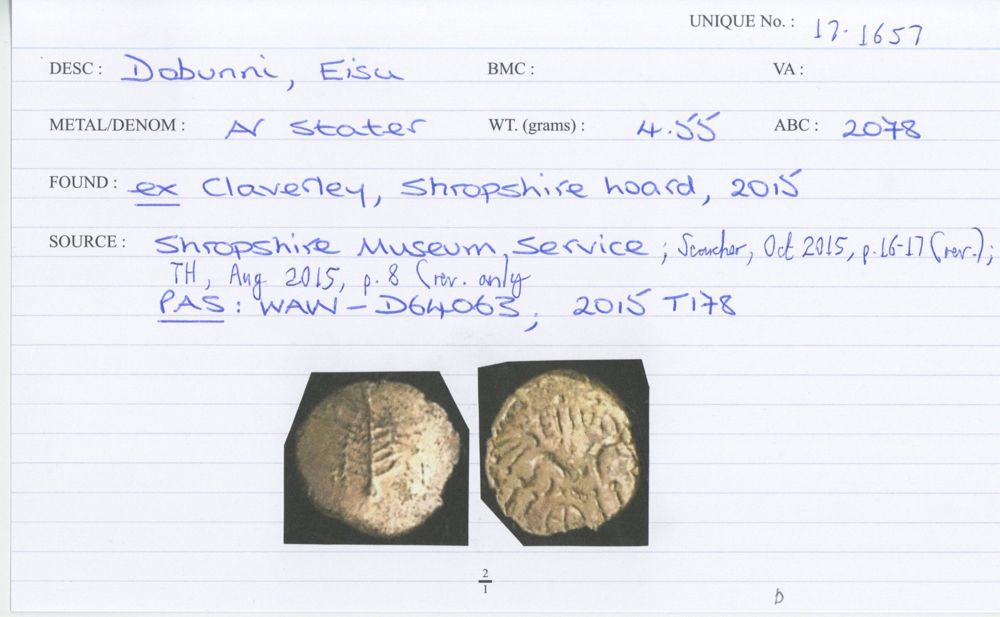 UNIQUE No. : 17.1657
DESC : Dobunni, Eisu BMC : VA :
METAL/DENOM : AV Stater WT. (grams) : 4.55 ABC : 2078
FOUND : ex Claverley, Shropshire hoard, 2015
SOURCE : Shropshire Museum Service ; Searcher, Oct 2015, p.16-17 (rev.);
TH, Aug 2015, p.8 (rev. only
PAS : WAW - D64063; 2015 T178
2
1
D